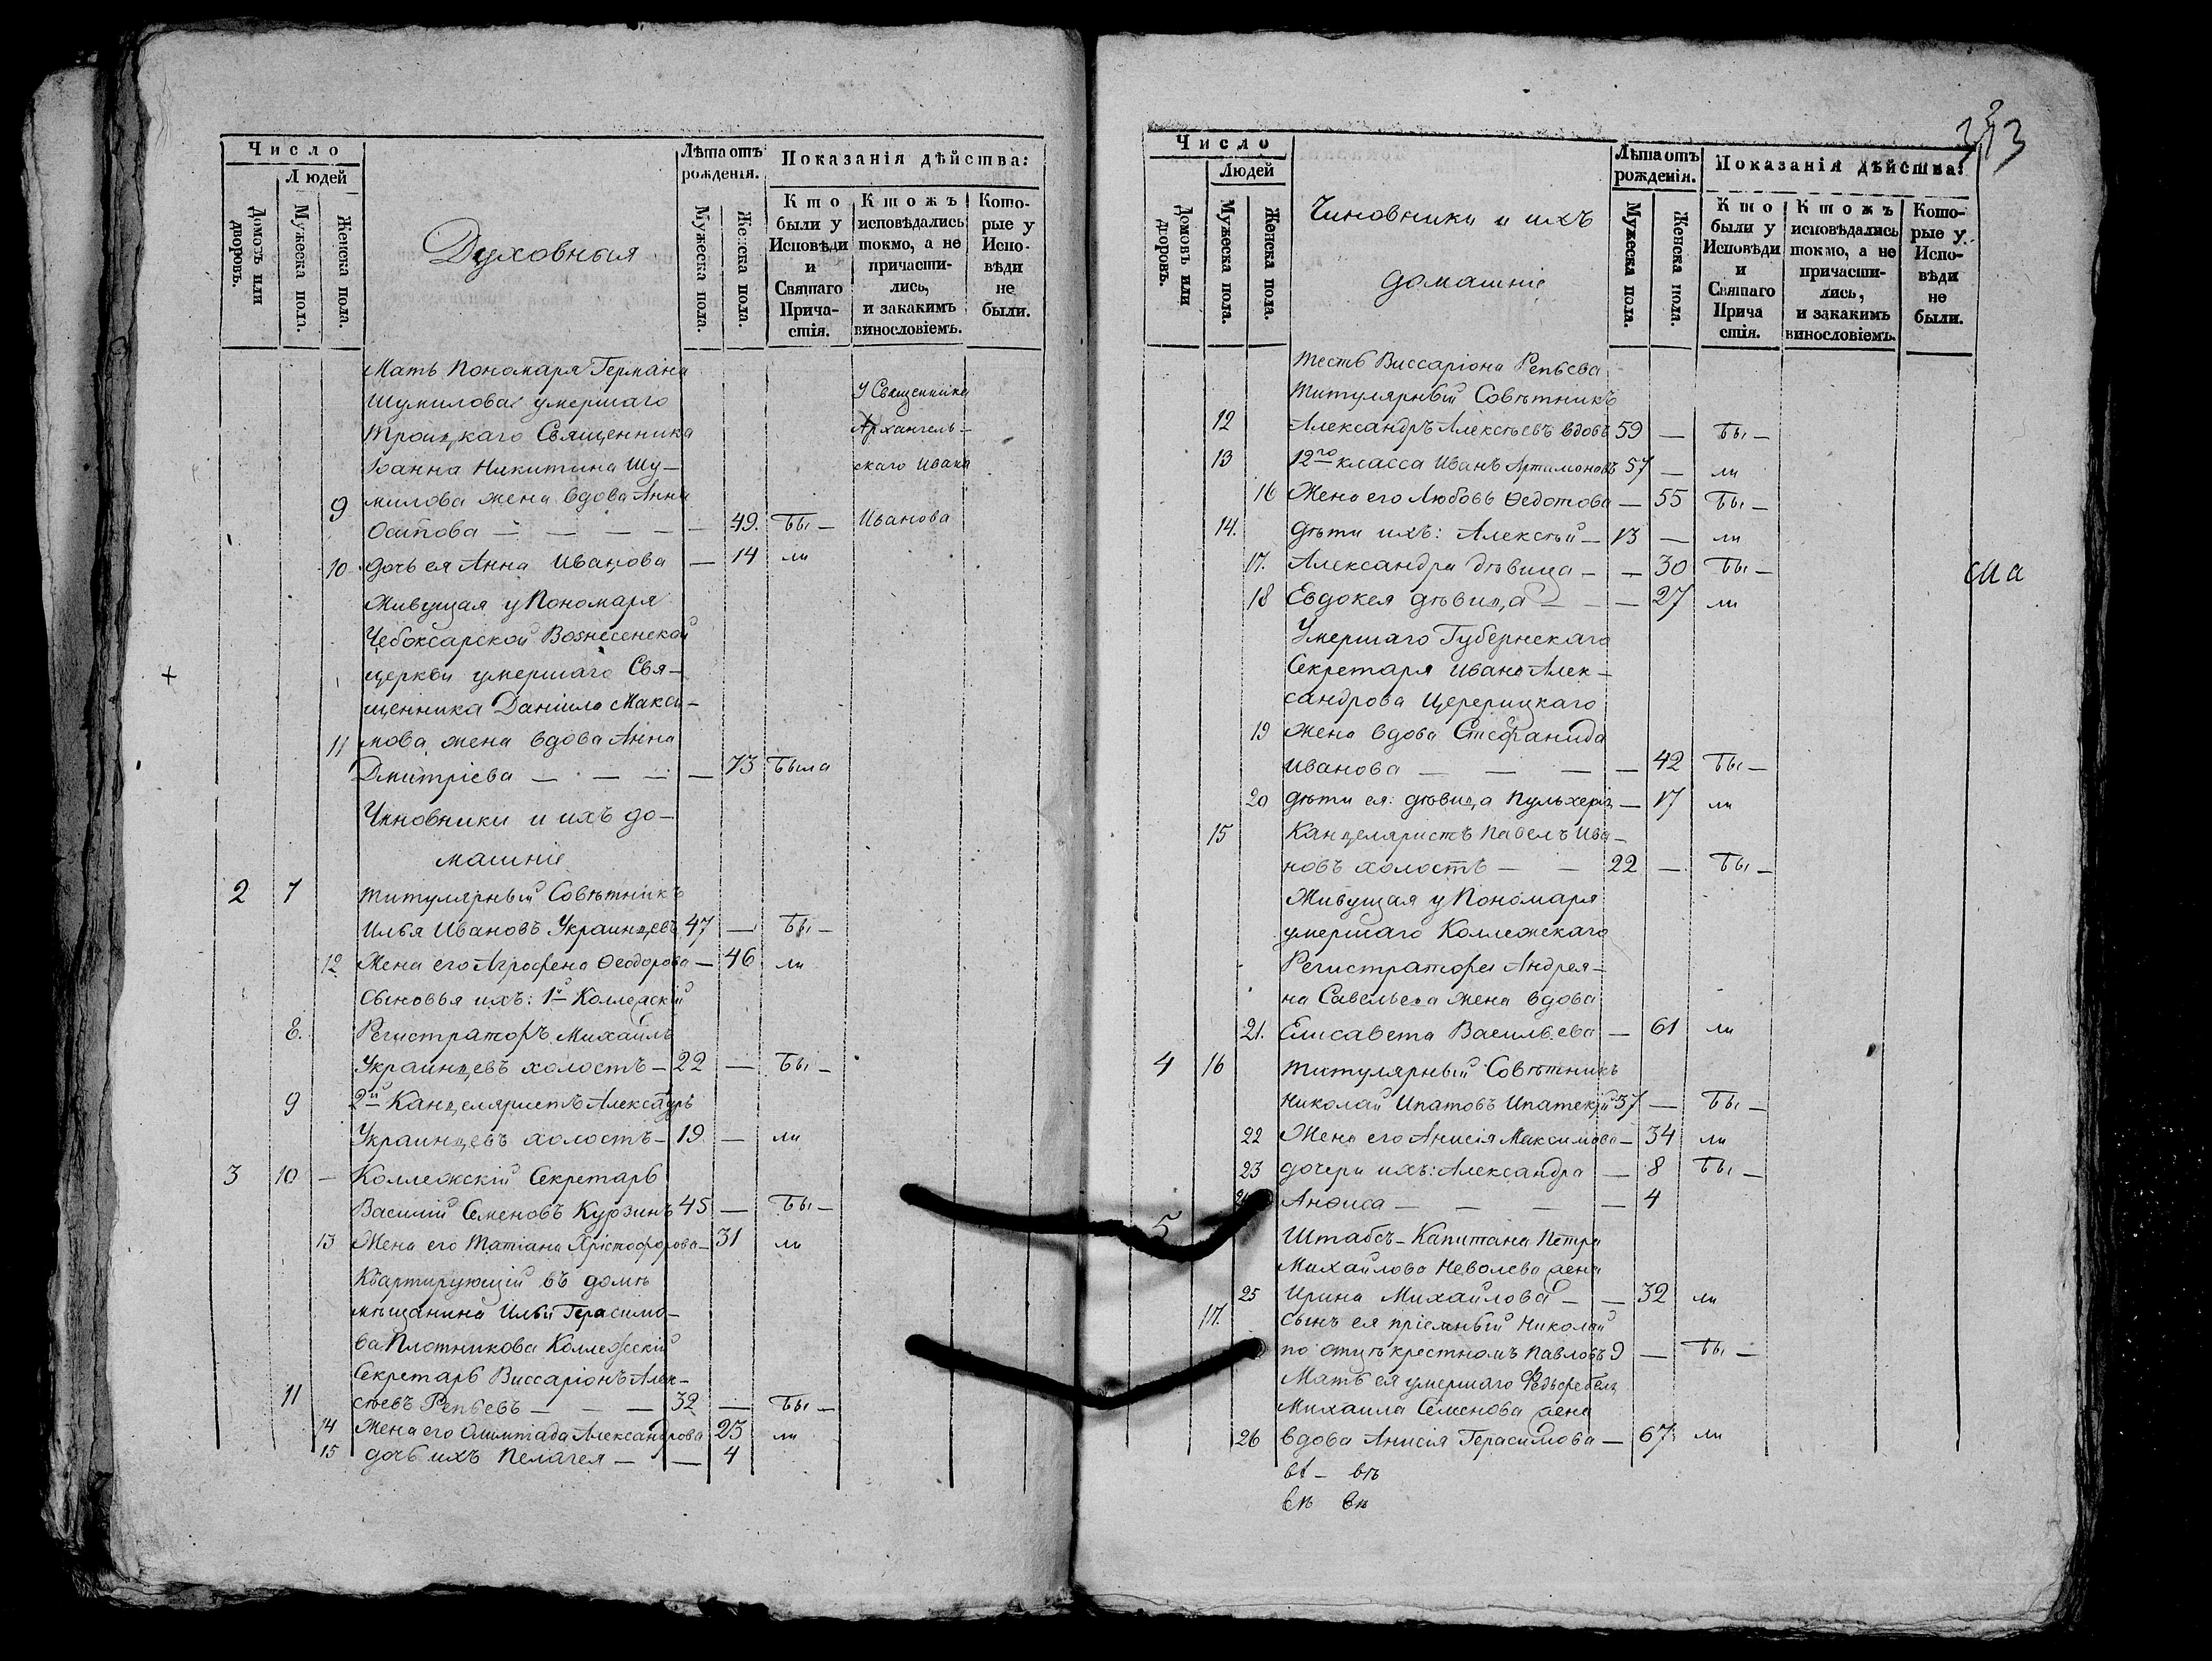 Число
Людей
Домовъ или дворовъ.
Мужеска пола.
Женска пола.
Духовныя
Лѣта отъ рожденія.
Мужеска пола.
Женска пола.
Показанія дѣйства:
Кто были у Исповѣди и Святаго Прича-стія.
Ктожъ исповѣдались токмо, а не причасти-лись, и закакимъ винословіемъ.
Кото-рые у Испо-вѣди не были.
Мать Пономаря Германа
Шумилова умершаго
Троицкаго Священника
Іоанна Никитина Шу-
9 милова жена вдова Анна
Осипова — — — — — 49. бы —
У Священника
Архангель-
скаго Ивана
Иванова
10 дочь ея Анна Иванова — 14 ли
Живущая у Пономаря
Чебоксарской Вознесенской
церкви умершаго Свя-
+
щенника Даніила Макси-
11 мова жена вдова Анна
Дмитріева — — — — 73 была
Чиновники и ихъ до-
машніе
2 7 Титулярный Совѣтникъ
Илья Ивановъ Украинцевъ 47 — бы —
12 Жена его Агрофена Ѳеодорова — 46 ли
Сыновья ихъ: 1й Коллежскій
8. Регистраторъ Михаилъ
Украинцевъ холостъ — 22 — бы —
9 2й Канцеляристъ Александръ
Украинцевъ холостъ — 19 — ли
3 10 — Коллежскій Секретарь
Василій Семеновъ Курзинъ 45 — бы —
13 Жена его Татіана Христофорова — 31 ли
Квартирующій въ домѣ
мѣщанина Ильи Герасимо-
ва Плотникова Коллежскій
Секретарь Виссаріонъ Алек-
11 сѣевъ Репьевъ — — — 32 — бы —
14 Жена его Олимпіада Александрова 25 ли
15 дочь ихъ Пелагея — — 4
Число
Людей
Домовъ или дворовъ.
Мужеска пола.
Женска пола.
Чиновники и ихъ
домашніе
Лѣта отъ рожденія.
Мужеска пола.
Женска пола.
Показанія дѣйства:
Кто были у Исповѣди и Святаго Прича стія.
Ктожъ исповѣдались токмо, а не причасти-лись, и закакимъ винословіемъ.
Кото-рые у Испо-вѣди не были.
Тесть Виссаріона Репьева
Титулярный Совѣтникъ
12 Александръ Алексѣевъ вдовъ 59 — бы —
13 12го класса Иванъ Артамоновъ 57 — ли
16 Жена его Любовь Ѳедотова — 55 бы —
14. дѣти ихъ: Алексѣй — 13 — ли
17. Александра дѣвица — — 30 бы —
ма
18 Евдокея дѣвица — — — 27 ли
Умершаго Губернскаго
Секретаря Ивана Алек-
сандрова
19 жена вдова Стефанида
Иванова — — — — 42 бы —
20 дѣти ея: дѣвица Пульхерія — 17 ли
15 Канцеляристъ Павелъ Ива-
новъ холостъ — — 22 — бы —
Живущая у Пономаря
умершаго Коллежскаго
Регистратора Андрея-
на Савельева жена вдова
21. Елисавета Васильева — 61 ли
4 16 Титулярный Совѣтникъ
Николай Ипатовъ 57 — бы —
22 Жена его Анисія Максимова — 34 ли
23 дочери ихъ: Александра — 8 бы —
24 Анѳиса — — — — 4
5 Штабсъ-Капитана Петра
Михайлова Неволева жена
25 Ирина Михайлова — — 32 ли
17. сынъ ея пріемный Николай
по отцѣ крестномъ Павловъ 9 — бы —
Мать ея умершаго Фельдфебеля
Михаила Семенова жена
26 вдова Анисія Герасимова — 67 ли